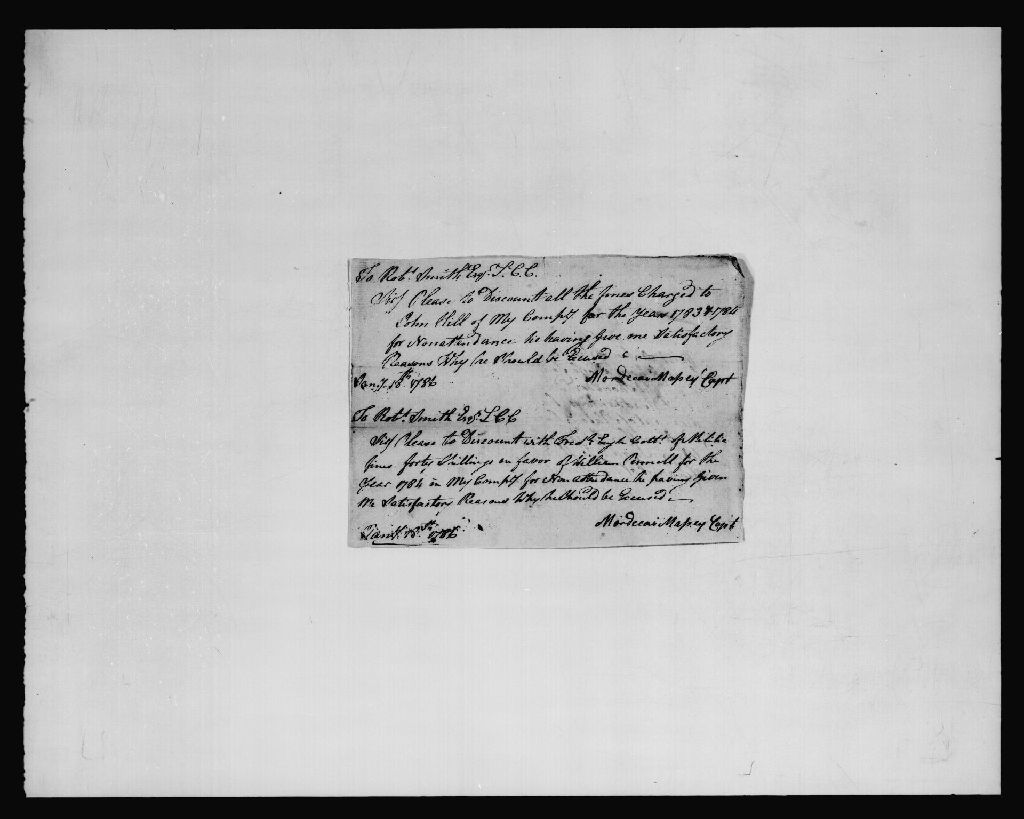 To Robt. Smith Esqr. L. C. C.
Sir/ Please to Discount all the fines Charged to
John Hill of My Compy for the Years 1783 & 1784
for Nonattendance he having Give me Satisfactory
Reasons Why he Should be Excused
Jany. 18th 1786 Mordecai Massey Capt
To Robt. Smith Esqr. L C C
Sir/ Please to Discount with Fredk.
fines forty Shillings in favor of William for the
Year 1784 in My Compy for Nonattendance he having Given
Me Satisfactory Reasons Why he Should be Excused
Jany. 18th 1786 Mordecai Massey Capt